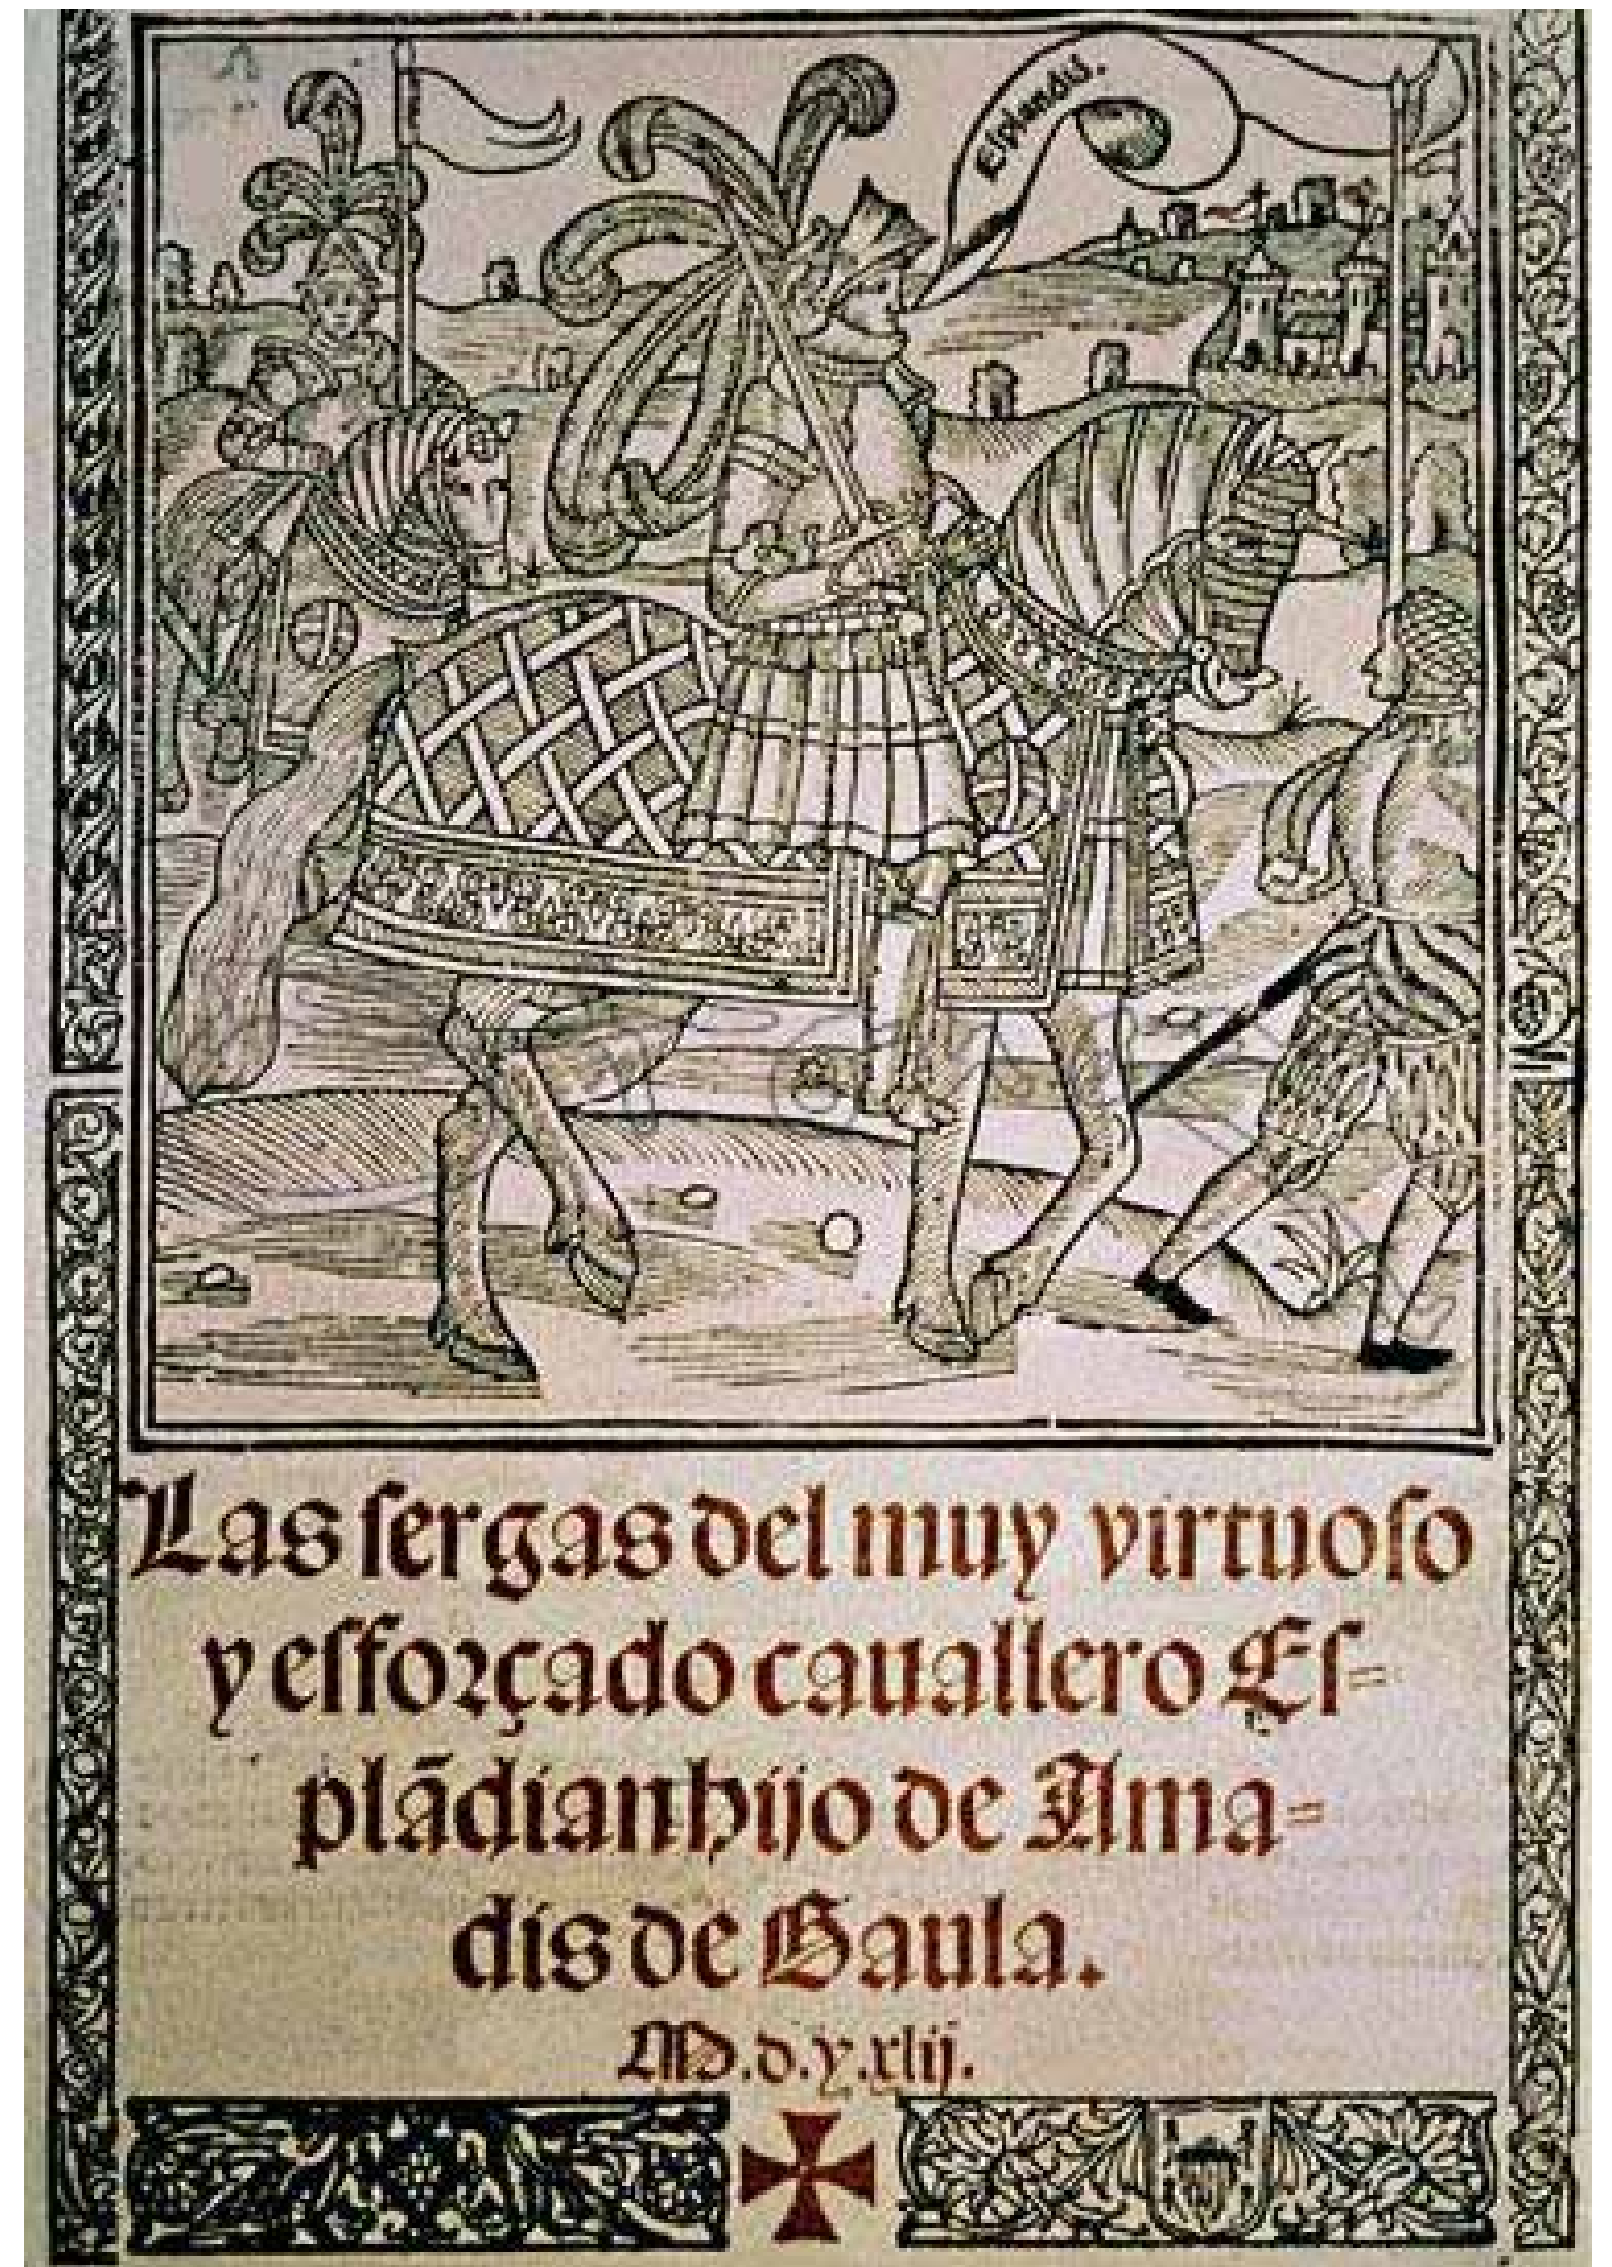 Esplandiā.
Las sergas del muy virtuoso
y esforçado cauallero Es=
plādian hijo de Ama=
dis de Gaula.
M.d.y.xlij.